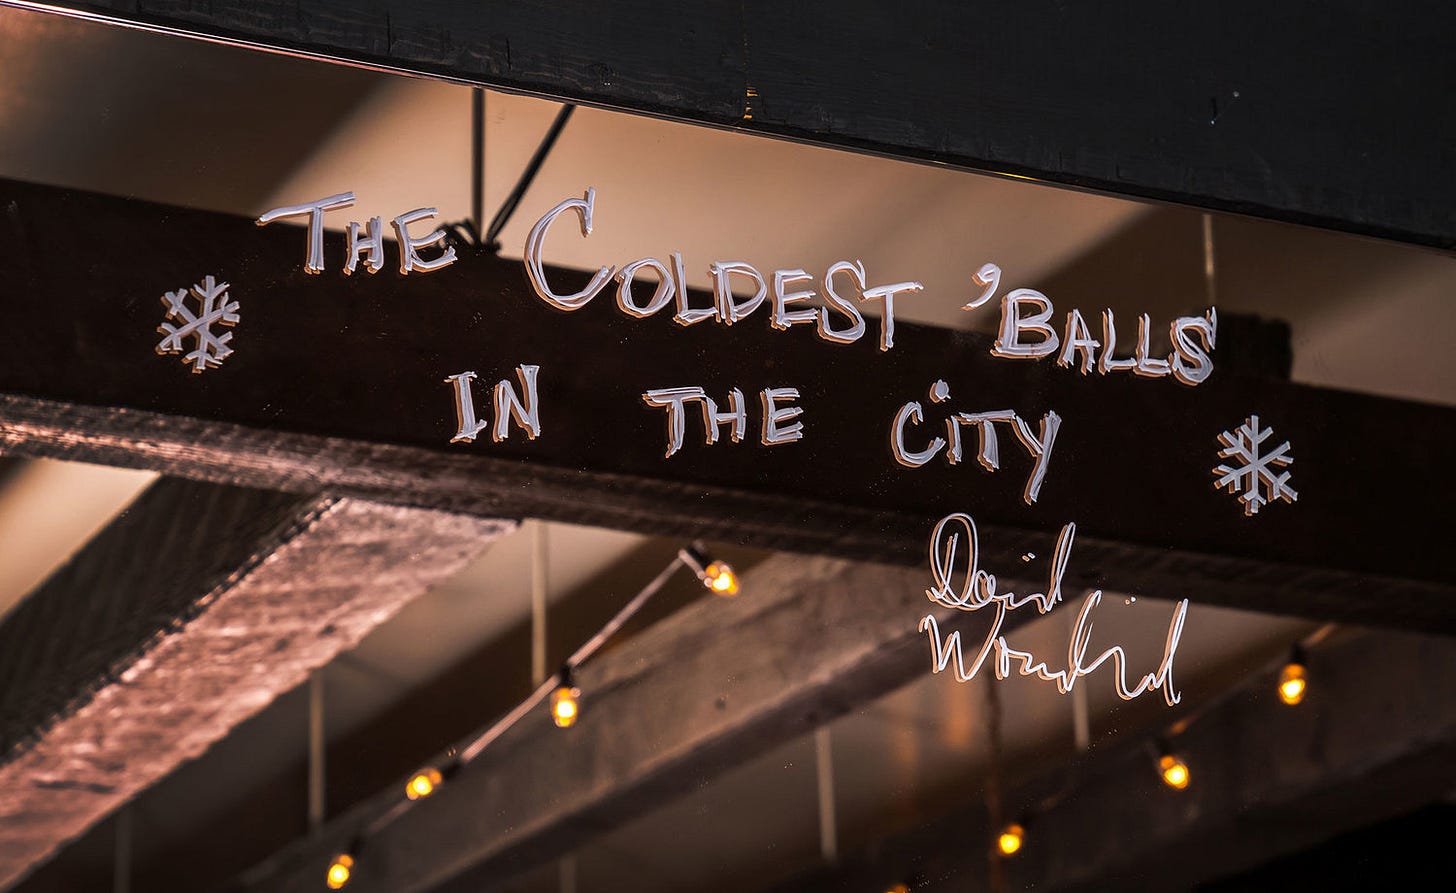 THE COLDEST 'BALLS
IN THE CITY
David
Wondrich